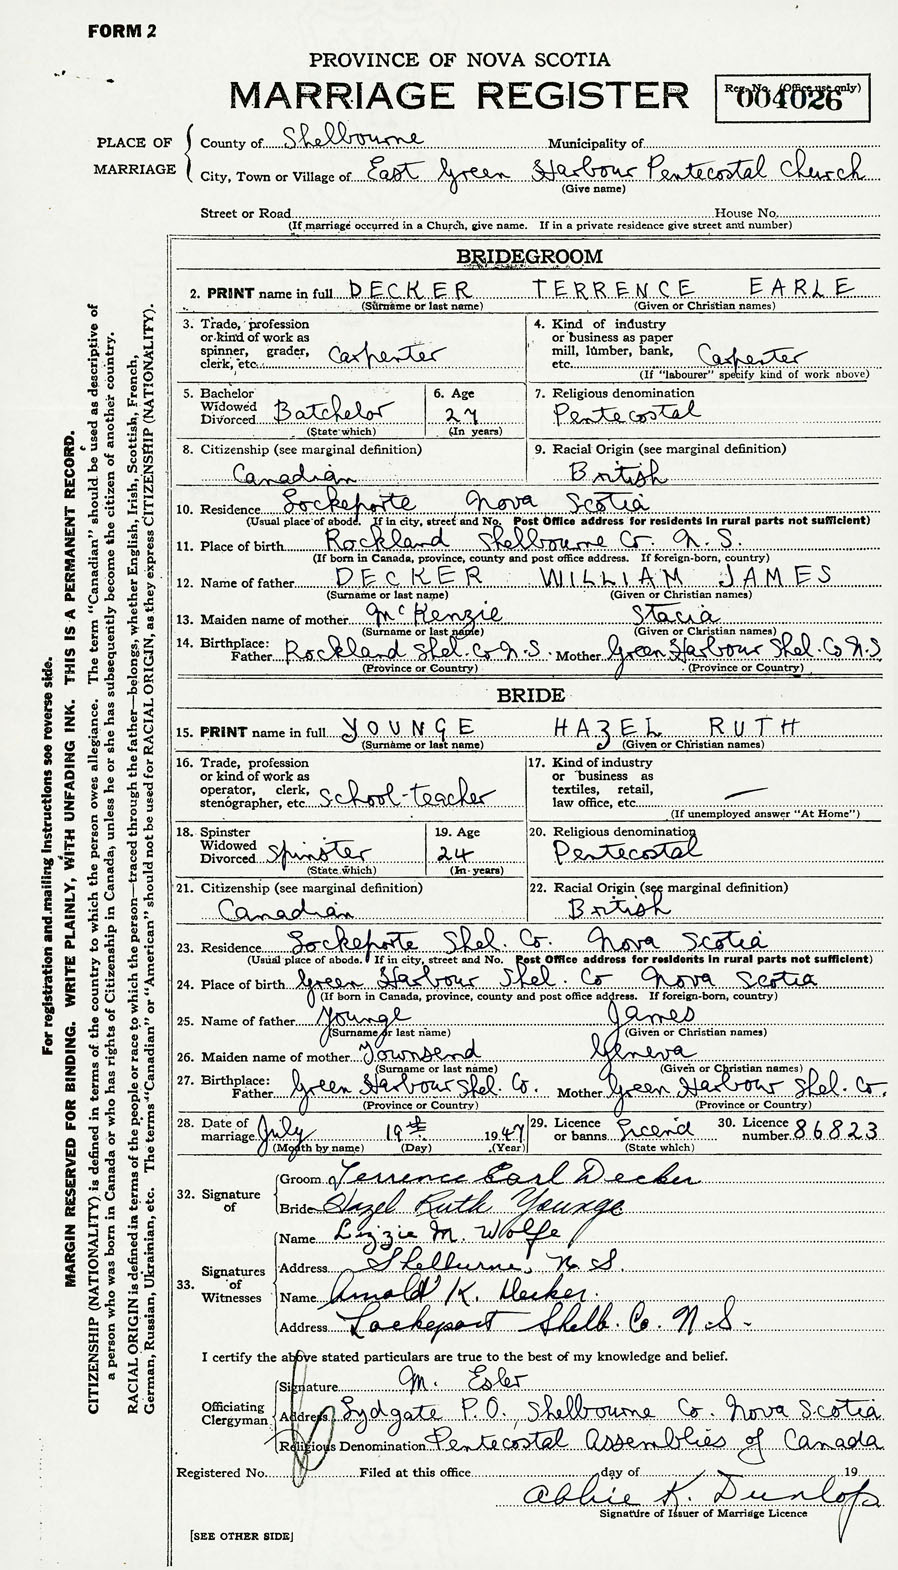 FORM 2
PROVINCE OF NOVA SCOTIA
MARRIAGE REGISTER
Reg. No. (Office use only)
004026
PLACE OF MARRIAGE
County of Shelbourne Municipality of
City, Town or Village of East Green Harbour Pentecostal Church
(Give name)
Street or Road House No.
(If marriage occurred in a Church, give name. If in a private residence give street and number)
BRIDEGROOM
2. PRINT name in full DECKER TERRENCE EARLE
(Surname or last name) (Given or Christian names)
3. Trade, profession or kind of work as spinner, grader, clerk, etc. Carpenter
4. Kind of industry or business as paper mill, lumber, bank, etc. Carpenter
(If "labourer" specify kind of work above)
5. Bachelor Widowed Divorced Batchelor
(State which)
6. Age 27
(In years)
7. Religious denomination Pentecostal
8. Citizenship (see marginal definition) Canadian
9. Racial Origin (see marginal definition) British
10. Residence Lockeporte Nova Scotia
(Usual place of abode. If in city, street and No. Post Office address for residents in rural parts not sufficient)
11. Place of birth Rockland Shelbourne Co. N.S.
(If born in Canada, province, county and post office address. If foreign-born, country)
12. Name of father DECKER WILLIAM JAMES
(Surname or last name) (Given or Christian names)
13. Maiden name of mother McKenzie Stacia
(Surname or last name) (Given or Christian names)
14. Birthplace: Father Rockland Shel. Co N.S. Mother Green Harbour Shel. Co N.S
(Province or Country) (Province or Country)
BRIDE
15. PRINT name in full YOUNGE HAZEL RUTH
(Surname or last name) (Given or Christian names)
16. Trade, profession or kind of work as operator, clerk, stenographer, etc. School-teacher
17. Kind of industry or business as textiles, retail, law office, etc. —
(If unemployed answer "At Home")
18. Spinster Widowed Divorced Spinster
(State which)
19. Age 24
(In years)
20. Religious denomination Pentecostal
21. Citizenship (see marginal definition) Canadian
22. Racial Origin (see marginal definition) British
23. Residence Lockeporte Shel. Co. Nova Scotia
(Usual place of abode. If in city, street and No. Post Office address for residents in rural parts not sufficient)
24. Place of birth Green Harbour Shel. Co Nova Scotia
(If born in Canada, province, county and post office address. If foreign-born, country)
25. Name of father Younge James
(Surname or last name) (Given or Christian names)
26. Maiden name of mother Townsend Geneva
(Surname or last name) (Given or Christian names)
27. Birthplace: Father Green Harbour Shel. Co. Mother Green Harbour Shel. Co.
(Province or Country) (Province or Country)
28. Date of marriage July 19th 1947
(Month by name) (Day) (Year)
29. Licence or banns
(State which)
30. Licence number 86823
32. Signature of
Groom Terrence Earl Decker
Bride Hazel Ruth Younge
33. Signatures of Witnesses
Name Lizzie M. Wolfe
Address Shelburne, N.S.
Name Arnold K. Decker.
Address Lockeport Shelb. Co. N.S.
I certify the above stated particulars are true to the best of my knowledge and belief.
Officiating Clergyman
Signature M. Esler
Address Lydgate P.O., Shelbourne Co. Nova Scotia
Religious Denomination Pentecostal Assemblies of Canada
Registered No. Filed at this office day of 19
Abbie K. Dunlop
Signature of Issuer of Marriage Licence
[SEE OTHER SIDE]
For registration and mailing instructions see reverse side.
MARGIN RESERVED FOR BINDING. WRITE PLAINLY, WITH UNFADING INK. THIS IS A PERMANENT RECORD.
CITIZENSHIP (NATIONALITY) is defined in terms of the country to which the person owes allegiance. The term "Canadian" should be used as descriptive of
a person who was born in Canada or who has rights of Citizenship in Canada, unless he or she has subsequently become the citizen of another country.
RACIAL ORIGIN is defined in terms of the people or race to which the person—traced through the father—belongs, whether English, Irish, Scottish, French,
German, Russian, Ukrainian, etc. The terms "Canadian" or "American" should not be used for RACIAL ORIGIN, as they express CITIZENSHIP (NATIONALITY).